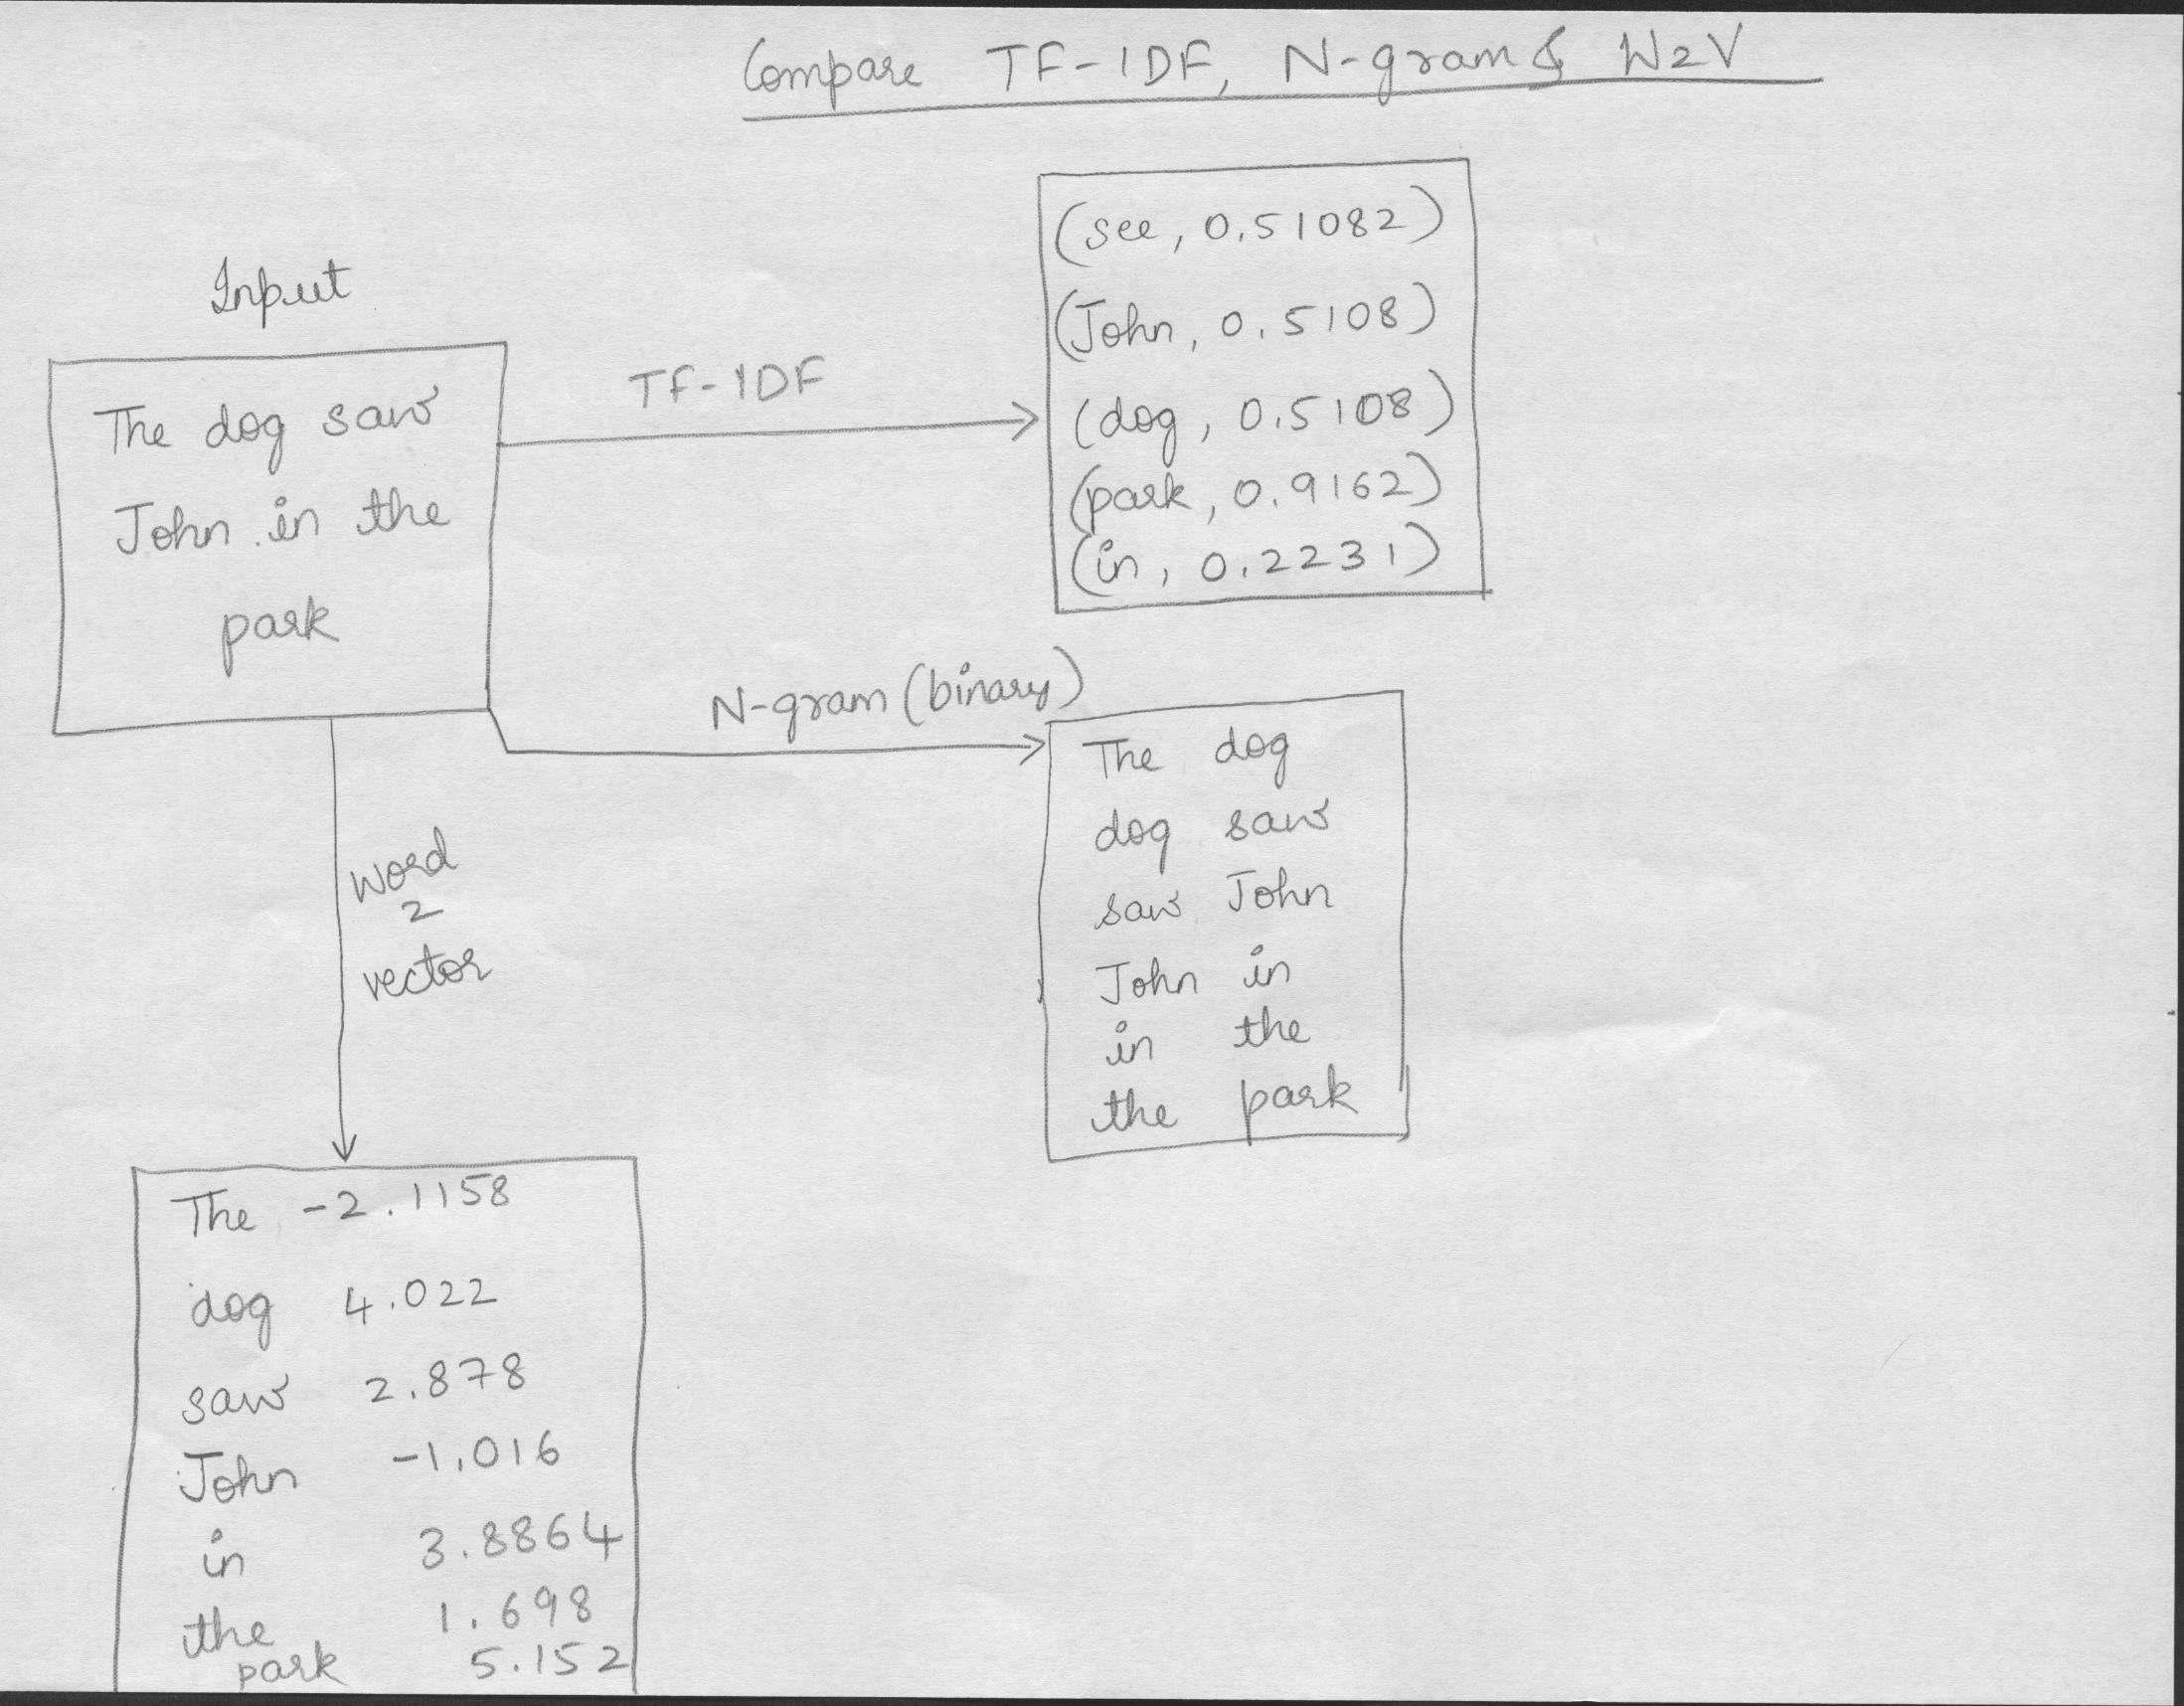 Compare TF-IDF, N-gram & W2V
Input
The dog saw
John in the
park
TF-IDF
(see, 0.51082)
(John, 0.5108)
(dog, 0.5108)
(park, 0.9162)
(in, 0.2231)
N-gram (binary)
The dog
dog saw
saw John
John in
in the
the park
word
2
vector
The -2.1158
dog 4.022
saw 2.878
John -1.016
in 3.8864
the 1.698
park 5.152